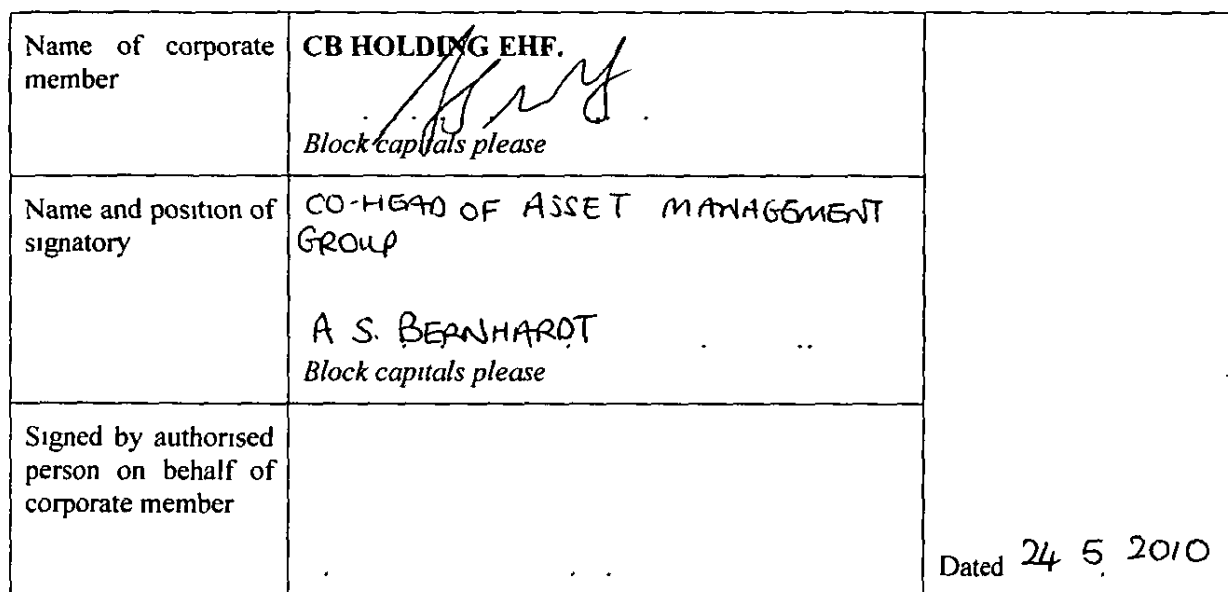 Name of corporate member
CB HOLDING EHF.
Block capitals please
Name and position of signatory
CO-HEAD OF ASSET MANAGEMENT
GROUP
A S. BERNHARDT
Block capitals please
Signed by authorised
person on behalf of
corporate member
Dated 24 5 2010